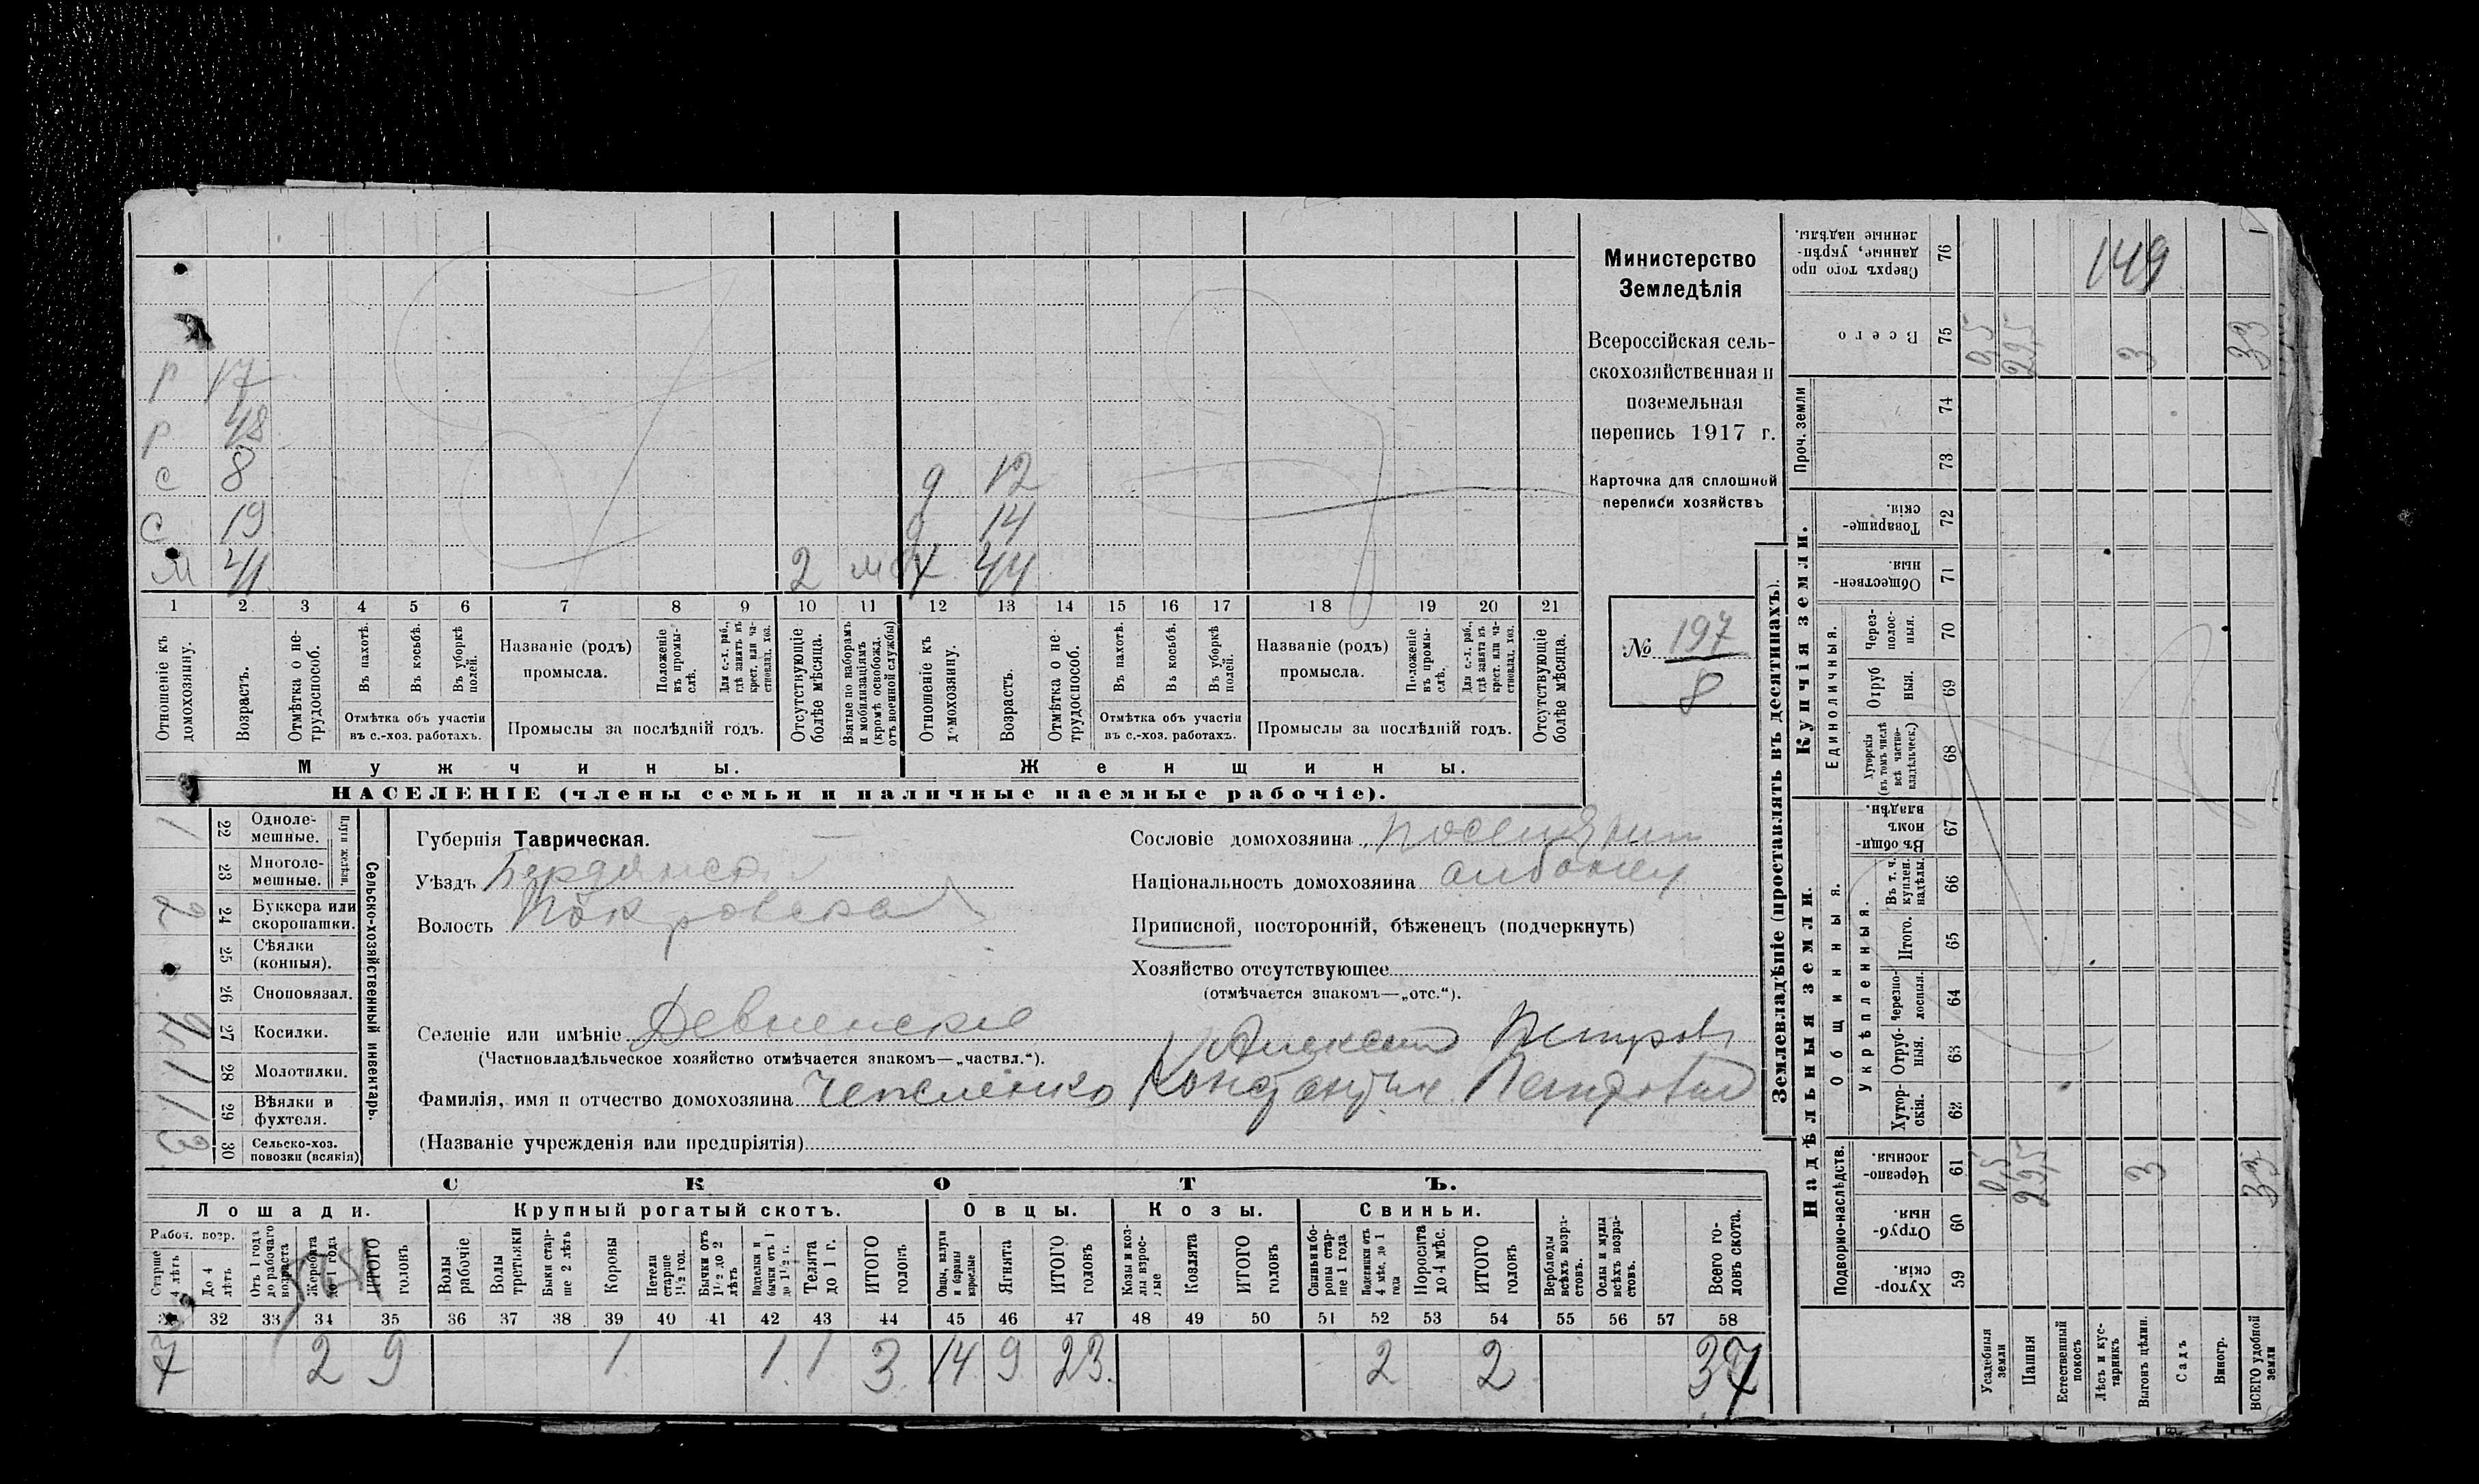 Министерство
Земледѣлія
Всероссійская сель-
скохозяйственная и
поземельная
перепись 1917 г.
Карточка для сплошной
переписи хозяйствъ
№ 197
8
Р 17
Р 48
С 8
д 12
С 19
д 14
М 41
2
44
1 2 3 4 5 6 7 8 9 10 11 12 13 14 15 16 17 18 19 20 21
Отношеніе къ домохозяину.
Возрастъ.
Отмѣтка о не-трудоспособ.
Въ пахотѣ.
Въ косьбѣ.
Въ уборкѣ полей.
Отмѣтка объ участіи
въ с.-хоз. работахъ.
Названіе (родъ)
промысла.
Положеніе въ промы-слѣ.
Для с.-х. раб., гдѣ занятъ въ крест. или ча-стновлад. хоз.
Промыслы за послѣдній годъ.
Отсутствующіе болѣе мѣсяца.
Взятые по наборамъ и мобилизаціямъ (кромѣ освобожд. отъ военной службы)
Отношеніе къ домохозяину.
Возрастъ.
Отмѣтка о не-трудоспособ.
Въ пахотѣ.
Въ косьбѣ.
Въ уборкѣ полей.
Отмѣтка объ участіи
въ с.-хоз. работахъ.
Названіе (родъ)
промысла.
Положеніе въ промы-слѣ.
Для с.-х. раб., гдѣ занята въ крест. или ча-стновлад. хоз.
Промыслы за послѣдній годъ.
Отсутствующіе болѣе мѣсяца.
Мужчины.
Женщины.
НАСЕЛЕНІЕ (члены семьи и наличные наемные рабочіе).
Сельско-хозяйственный инвентарь.
Плуги желѣзн.
1 22 Одноле-мешные.
23 Многоле-мешные.
2 24 Буккера или скоропашки.
25 Сѣялки (конныя).
26 Сноповязал.
27 Косилки.
1 28 Молотилки.
1 29 Вѣялки и фухтеля.
3 30 Сельско-хоз. повозки (всякія)
Губернія Таврическая.
Уѣздъ Бердянскій
Волость Покровская
Селеніе или имѣніе Девненское
(Частновладѣльческое хозяйство отмѣчается знакомъ—„частвл.“).
Сословіе домохозяина поселянин
Національность домохозяина албанец
Приписной, посторонній, бѣженецъ (подчеркнуть)
Хозяйство отсутствующее
(отмѣчается знакомъ—„отс.“).
Петров
Фамилія, имя и отчество домохозяина Константин Петрович
(Названіе учрежденія или предпріятія)
СКОТЪ.
Лошади.
Крупный рогатый скотъ.
Овцы.
Козы.
Свиньи.
Рабоч. возр.
Старше 4 лѣтъ
До 4 лѣтъ
Отъ 1 года до рабочаго возраста
Жеребята до 1 года
ИТОГО головъ
Волы рабочіе
Волы третьяки
Быки стар-ше 2 лѣтъ
Коровы
Нетели старше 1½ год.
Бычки отъ 1½ до 2 лѣтъ
Подтелки и бычки отъ 1 до 1½ г.
Телята до 1 г.
ИТОГО головъ
Овцы, валухи и бараны взрослые
Ягнята
ИТОГО головъ
Козы и коз-лы взрос-лые
Козлята
ИТОГО головъ
Свиньи и бо-ровы стар-ше 1 года
Подсвинки отъ 4 мѣс. до 1 года
Поросята до 4 мѣс.
ИТОГО головъ
Верблюды всѣхъ возра-стовъ.
Ослы и мулы всѣхъ возра-стовъ.
Всего го-ловъ скота.
31 32 33 34 35 36 37 38 39 40 41 42 43 44 45 46 47 48 49 50 51 52 53 54 55 56 57 58
7 2 9 1 1 1 3 14 9 23 2 2 37
Землевладѣніе (проставлять въ десятинахъ).
Купчія земли.
Надѣльныя земли.
Проч. земли
Единоличныя.
Общинныя.
Укрѣпленныя.
Подворно-наслѣдств.
Сверхъ того про-данные, укрѣп-ленные надѣлы. 76
149
Всего 75
0,5 29,5 3 33
74
73
Товарище-скія. 72
Обществен-ныя. 71
Через-полос-ныя. 70
Отруб-ныя. 69
Хуторскія (въ томъ числѣ всѣ частно-владѣльческ.) 68
Въ общин-номъ владѣн. 67
Въ т. ч. куплен. надѣлы. 66
Итого. 65
Черезпо-лосныя. 64
Отруб-ныя. 63
Хутор-скія. 62
Черезпо-лосныя. 61
0,5 29,5 3 33
Отруб-ныя. 60
Хутор-скія. 59
Усадебная земли
Пашня
Естественный покосъ
Лѣсъ и кус-тарникъ
Выгонъ цѣлин.
Садъ
Виногр.
ВСЕГО удобной земли